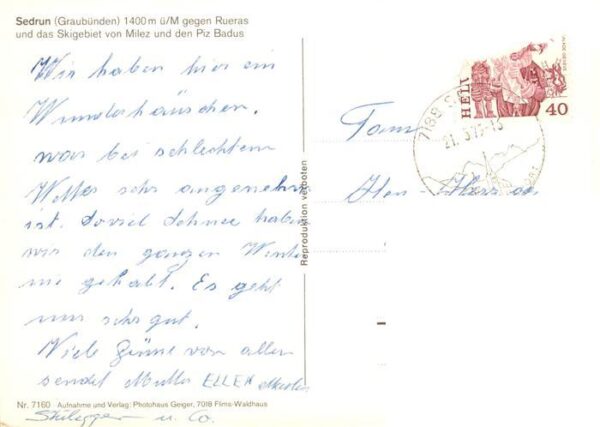 Sedrun (Graubünden) 1400 m ü/M gegen Rueras
und das Skigebiet von Milez und den Piz Badus
Wir haben hier ein
Wunderhäuschen,
was bei schlechtem
Wetter sehr angenehm
ist. Soviel Schnee haben
wir den ganzen Winter
nie gehabt. Es geht
uns sehr gut.
Viele von allen
sendet Mutter ELLEN
u. Co.
Nr. 7160 Aufnahme und Verlag: Photohaus Geiger, 7018 Flims-Waldhaus
Reproduktion verboten
HELV
40
7188
21. 3.